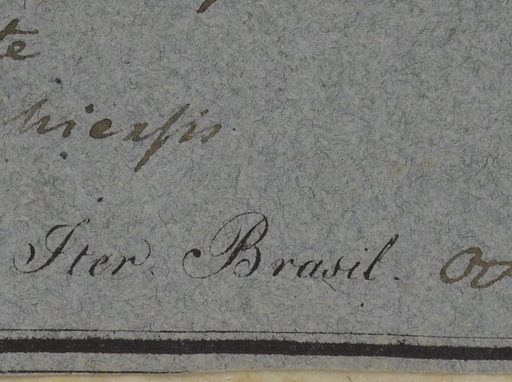 te
hiensis
Iter. Brasil.